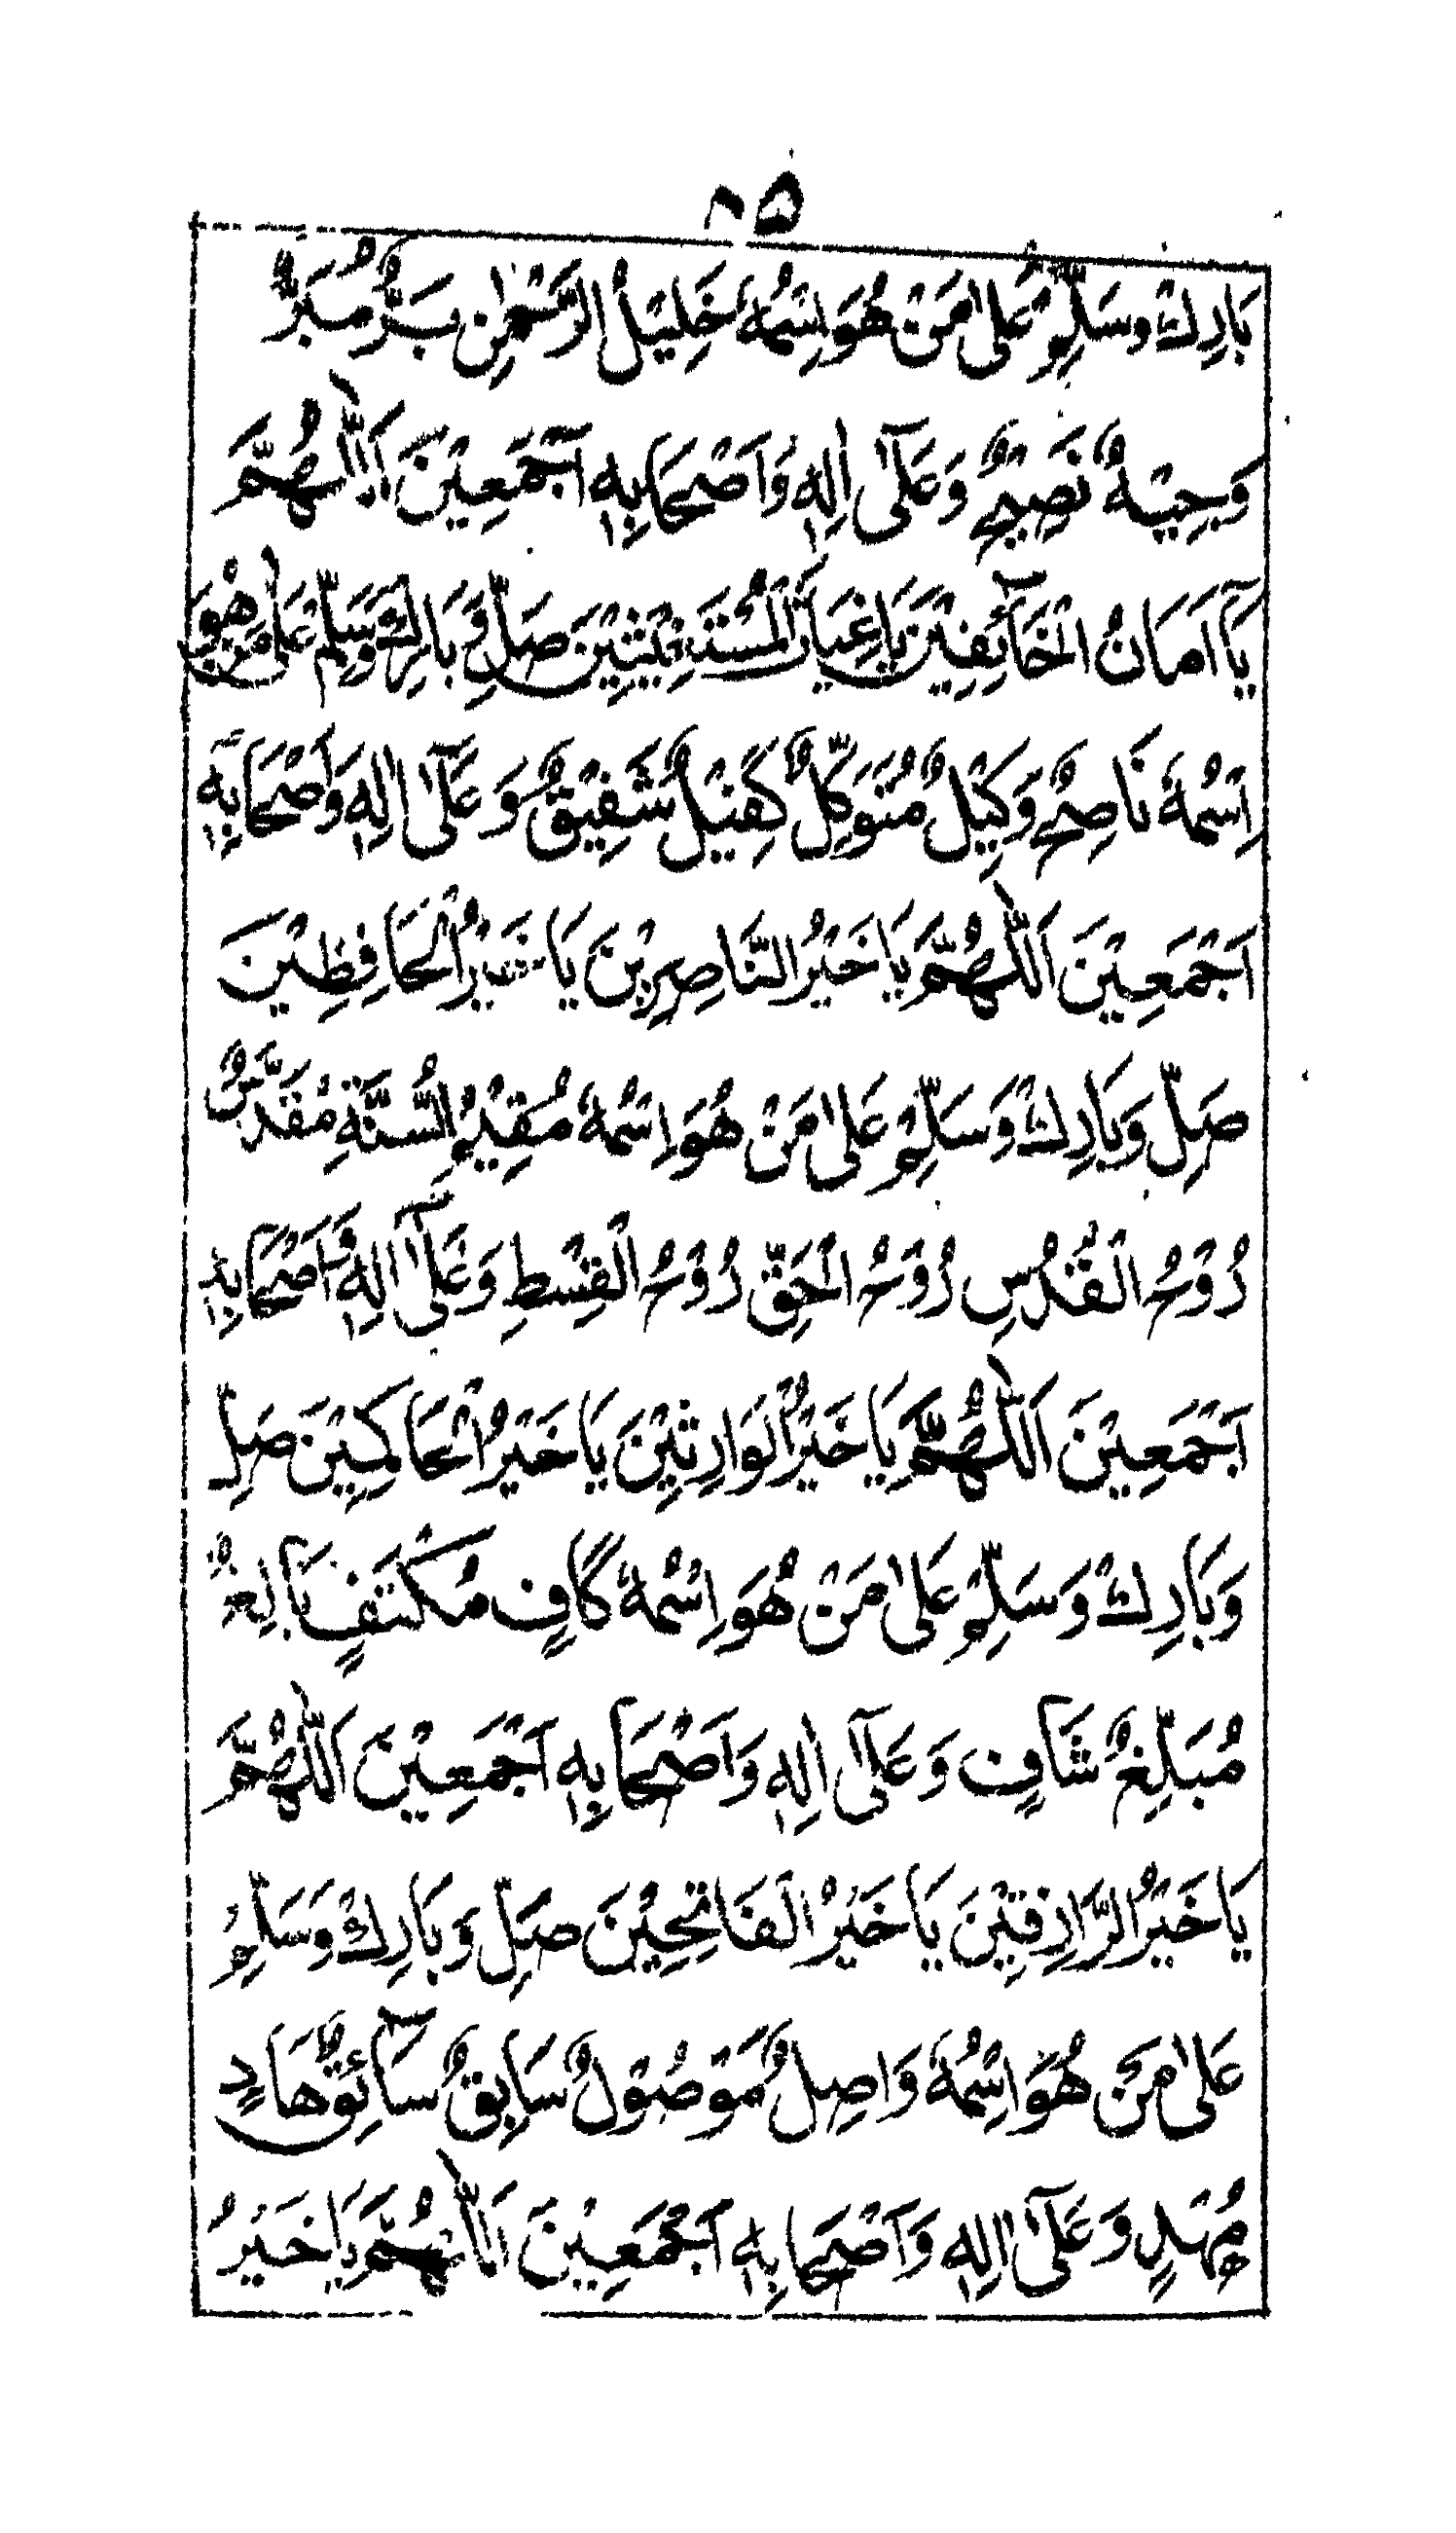 ٨٥
بَارِكْ وَسَلِّمْ عَلٰى مَنْ هُوَ اِسْمُهٗ خَلِيْلُ الرَّحْمٰنِ بَرٌّ مُبَرٌّ
وَجِيْهٌ نَصِيْحٌ وَعَلٰٓى اٰلِهٖ وَاَصْحَابِهٖٓ اَجْمَعِيْنَ اَللّٰهُمَّ
يَآ اَمَانَ الْخَآئِفِيْنَ يَا غِيَاثَ الْمُسْتَغِيْثِيْنَ صَلِّ وَبَارِكْ وَسَلِّمْ عَلٰى مَنْ هُوَ
اِسْمُهٗ نَاصِحٌ وَكِيْلٌ مُتَوَكِّلٌ كَفِيْلٌ شَفِيْقٌ وَعَلٰٓى اٰلِهٖ وَاَصْحَابِهٖٓ
اَجْمَعِيْنَ اَللّٰهُمَّ يَا خَيْرُ النَّاصِرِيْنَ يَا خَيْرُ الْحَافِظِيْنَ
صَلِّ وَبَارِكْ وَسَلِّمْ عَلٰى مَنْ هُوَ اِسْمُهٗ مُقِيْمُ السُّنَّةِ مُقَدَّسٌ
رُوْحُ الْقُدُسِ رُوْحُ الْحَقِّ رُوْحُ الْقِسْطِ وَعَلٰٓى اٰلِهٖ وَاَصْحَابِهٖ
اَجْمَعِيْنَ اَللّٰهُمَّ يَا خَيْرُ الْوَارِثِيْنَ يَا خَيْرُ الْحَاكِمِيْنَ صَلِّ
وَبَارِكْ وَسَلِّمْ عَلٰى مَنْ هُوَ اِسْمُهٗ كَافٍ مُكْتَفٍ بَالِغٌ
مُبَلِّغٌ شَافٍ وَعَلٰٓى اٰلِهٖ وَاَصْحَابِهٖ اَجْمَعِيْنَ اَللّٰهُمَّ
يَا خَيْرُ الرَّازِقِيْنَ يَا خَيْرُ الْفَاتِحِيْنَ صَلِّ وَبَارِكْ وَسَلِّمْ
عَلٰى مَنْ هُوَ اِسْمُهٗ وَاصِلٌ مَوْصُوْلٌ سَابِقٌ سَآئِقٌ هَادٍ
مُهْدٍ وَعَلٰٓى اٰلِهٖ وَاَصْحَابِهٖ اَجْمَعِيْنَ اَللّٰهُمَّ يَا خَيْرُ